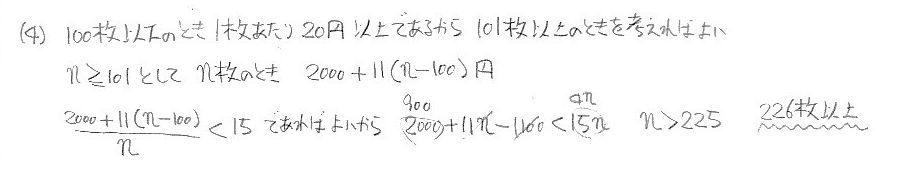 (4) 100枚以下のとき1枚あたり20円以上であるから 101枚以上のときを考えればよい
n≧101として n枚のとき 2000+11(n-100)円
900 4n
2000+11(n-100)/n < 15 であればよいから 2000+11n-1100<15n n>225 226枚以上